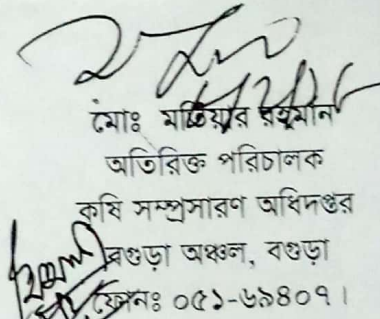 মোঃ মতিয়ার রহমান
অতিরিক্ত পরিচালক
কৃষি সম্প্রসারণ অধিদপ্তর
বগুড়া অঞ্চল, বগুড়া
ফোনঃ ০৫১-৬৯৪০৭।